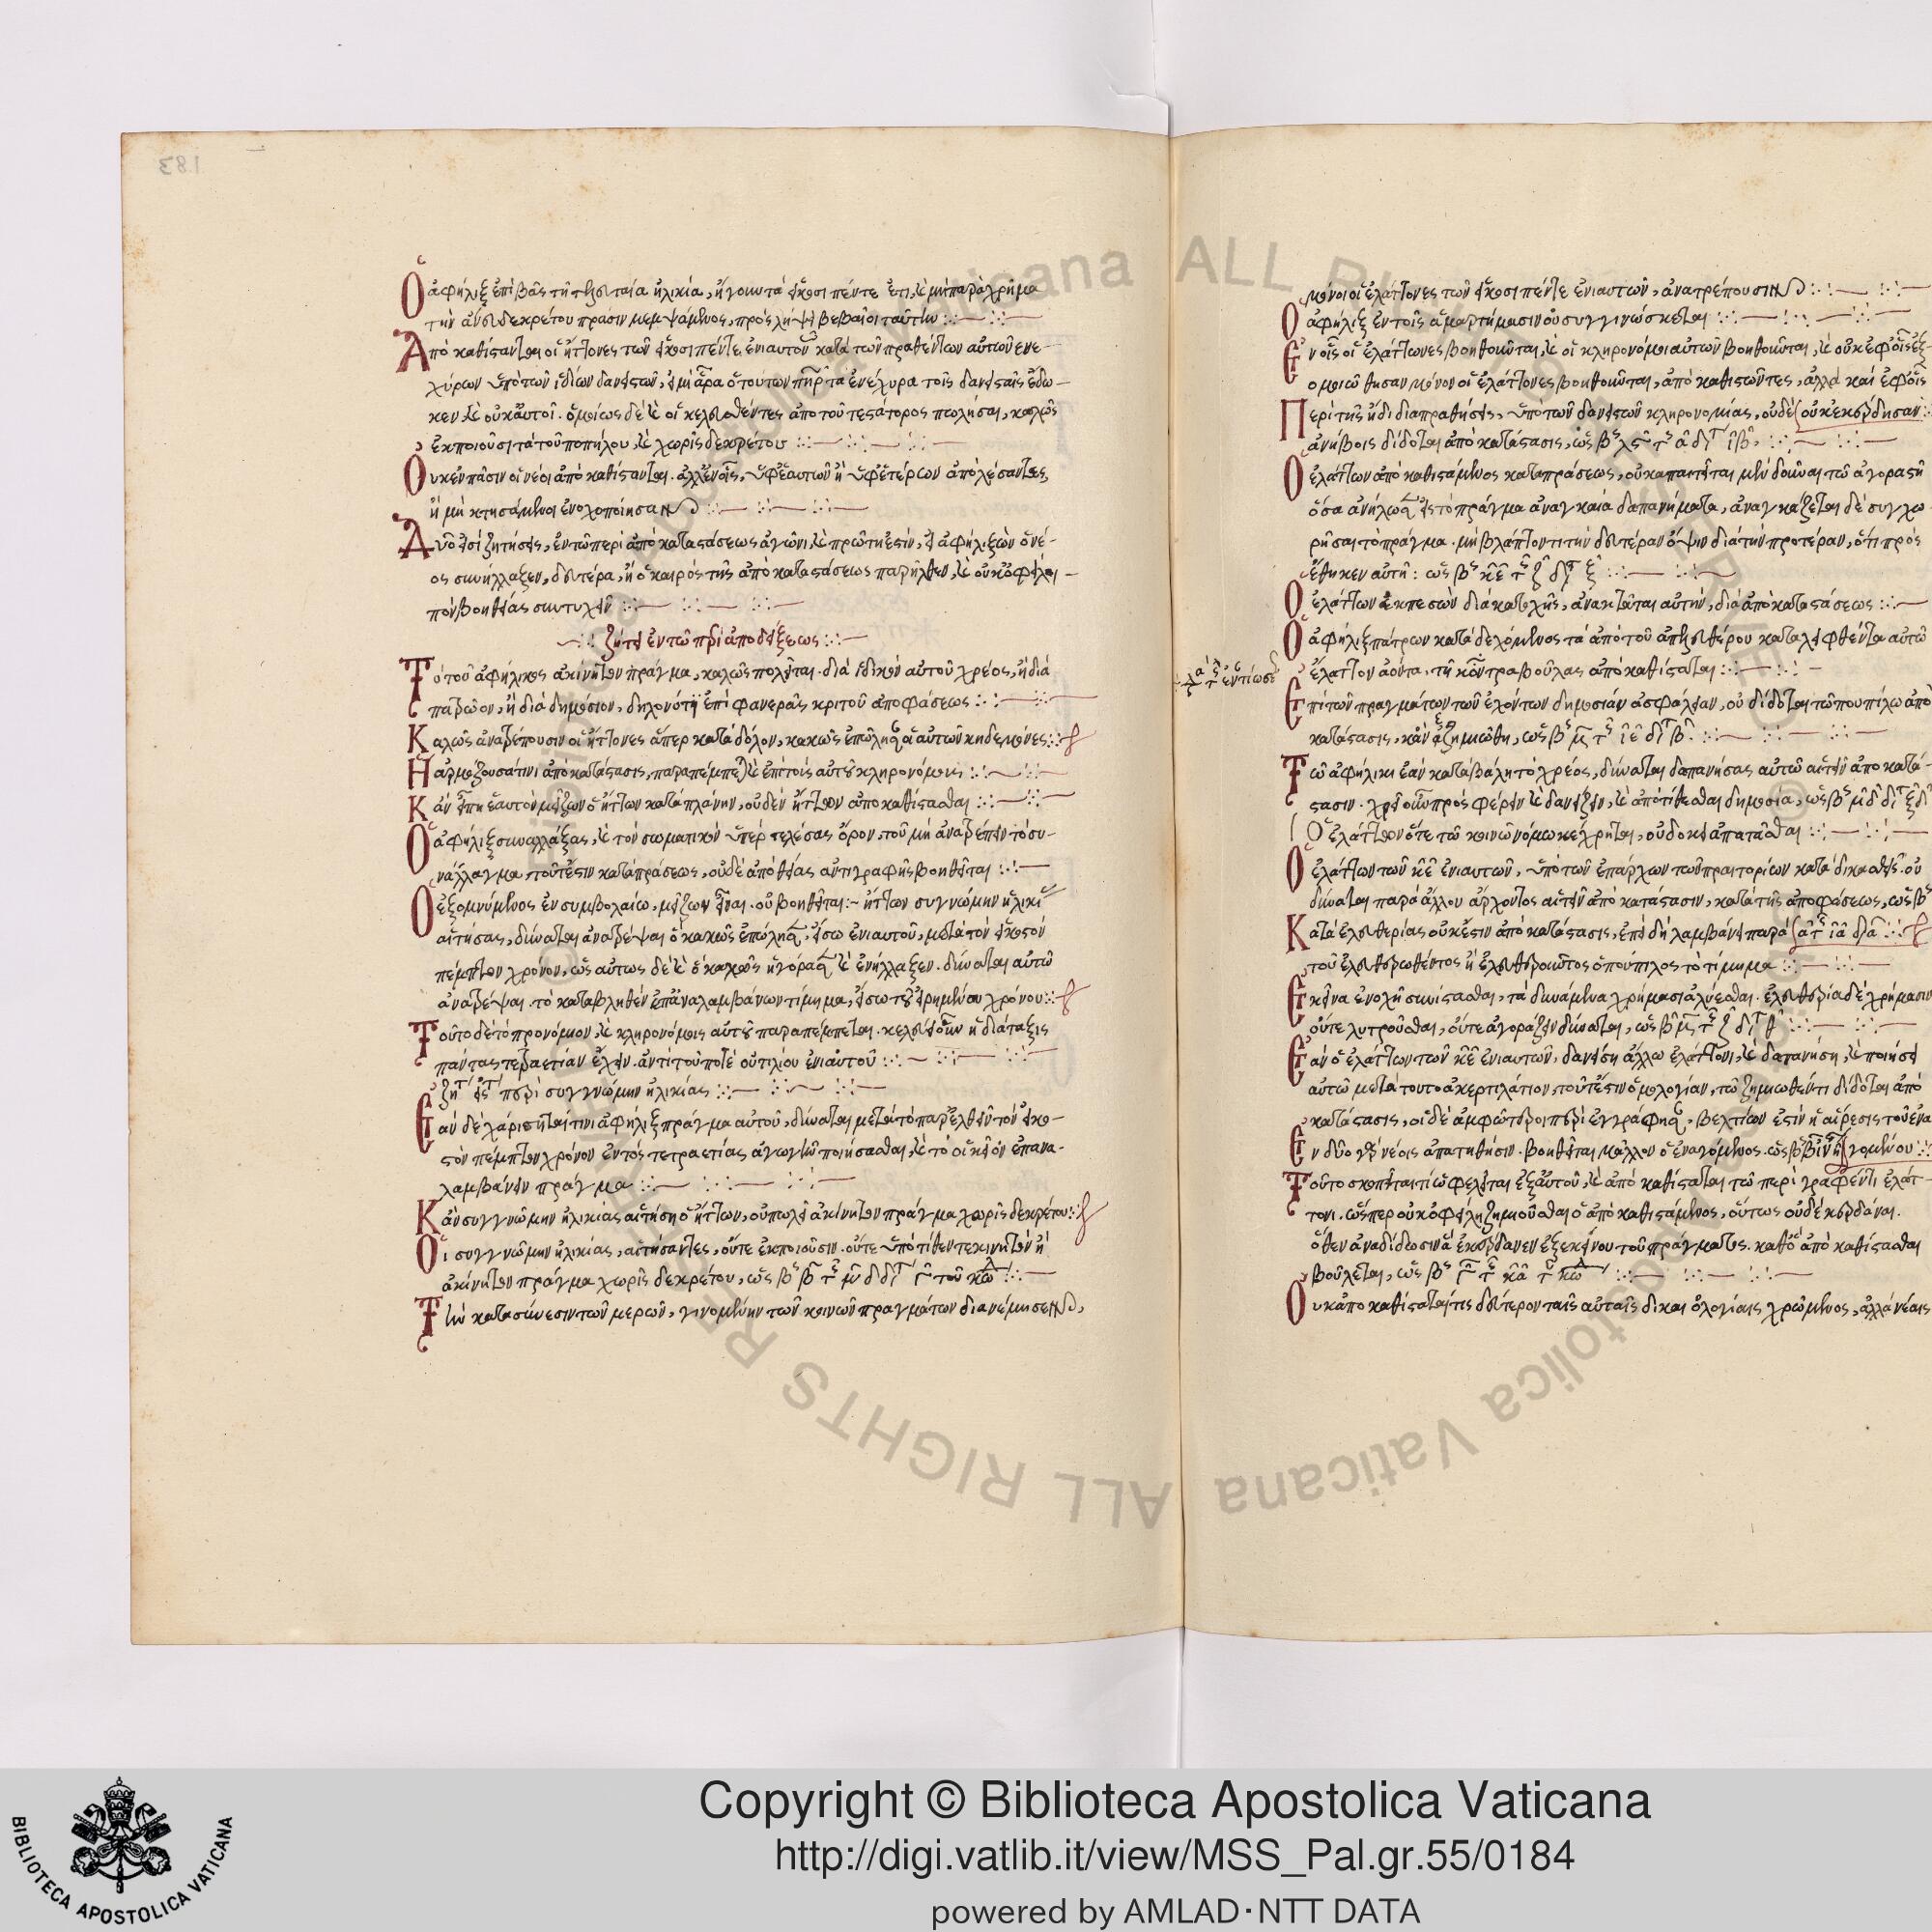 Ὁ ἀφήλιξ ἐπιβὰς τῇ τελευταίᾳ ἡλικίᾳ, ἤγουν τὰ εἴκοσι πέντε ἔτη, καὶ μὴ παραχρῆμα
τὴν ἄνευ δεκρέτου πρᾶσιν μεμψάμενος, πρὸς
Ἀποκαθίστανται οἱ ἥττονες τῶν εἴκοσι πέντε ἐνιαυτῶν κατὰ τῶν πραθέντων αὐτῶν ἐνε-
χύρων ὑπὸ τῶν ἰδίων δανειστῶν, εἰ μὴ ἄρα ὁ τούτων πατὴρ τὰ ἐνέχυρα τοῖς δανεισταῖς ἔδω-
κεν καὶ οὐκ αὐτοί. ὁμοίως δὲ καὶ οἱ κελευσθέντες ἀπὸ τοῦ τεστάτορος πωλῆσαι, καλῶς
ἐκποιοῦσι τὰ τοῦ ποπήλου καὶ χωρὶς δεκρέτου
Οὐκ ἐν πᾶσιν οἱ νέοι ἀποκαθίστανται. ἀλλ' ἐν οἷς, ὑφ' ἑαυτῶν ἢ ὑφ' ἑτέρων ἀπολέσαντες,
ἢ μὴ κτησάμενοι
Δύο εἰσὶ ζητήσεις, ἐν τῷ περὶ ἀποκαταστάσεως ἀγῶνι, καὶ πρώτη ἐστίν, εἰ ἀφήλιξ ὢν ὁ νέ-
ος συνήλλαξεν, δευτέρα, ἢ ὁ καιρὸς τῆς ἀποκαταστάσεως παρῆλθεν, καὶ οὐκ ὀφείλει
βοηθείας συντυχεῖν
ζήτει ἐν τῷ περὶ ἀποδείξεως
Τὸ τοῦ ἀφήλικος ἀκίνητον πρᾶγμα, καλῶς πολεῖται. διὰ εἰδικὸν αὐτοῦ χρέος, ἢ διὰ
πατρῷον, ἢ διὰ δημόσιον, δηλονότι ἐπὶ φανερᾶς κριτοῦ ἀποφάσεως
Καλῶς ἀνατρέπουσιν οἱ ἥττονες ἅπερ κατὰ δόλον, κακῶς ἐπώλησαν οἱ αὐτῶν κηδεμόνες
Ἡ ἁρμόζουσά τινι ἀποκατάστασις, παραπέμπεται καὶ ἐπὶ τοῖς αὐτοῦ κληρονόμοις
Κἂν εἴπῃ ἑαυτὸν μείζων ὁ ἥττων κατὰ πλάνην, οὐδὲν ἧττον ἀποκαθίσταται
Ὁ ἀφήλιξ συναλλάξας, καὶ τὸν σωματικὸν ὑπερτελέσας ὅρον, τοῦ μὴ ἀνατρέπειν τὸ συ-
νάλλαγμα, τουτέστιν κατὰ πράσεως, οὐδὲ ἀπὸ θείας ἀντιγραφῆς βοηθεῖται
Ὁ ἐξομνύμενος ἐν συμβολαίῳ, μείζων εἶναι. οὐ βοηθεῖται. ἥττων συγνώμην ἡλικίας
αἰτήσας, δύναται ἀνατρέψαι ὃ κακῶς ἐπώλησεν, εἴσω ἐνιαυτοῦ, μετὰ τὸν εἰκοστὸν
πέμπτον χρόνον, ὡσαύτως δὲ καὶ ὃ κακῶς ἠγόρασεν καὶ ἐνήλλαξεν. δύναται αὐτῷ
ἀνατρέψαι. τὸ καταβληθὲν ἐπαναλαμβάνων τίμημα, εἴσω τοῦ εἰρημένου χρόνου
Τοῦτο δὲ τὸ προνόμιον, καὶ κληρονόμοις αὐτοῦ παραπέμπεται. κελεύει οὖν ἡ διάταξις
πάντας τετραετίαν ἔχειν. ἀντὶ τοῦ ποτὲ οὐτιλίου ἐνιαυτοῦ
περὶ συγγνώμην ἡλικίας
Ἐὰν δὲ χαρίσηταί τινι ἀφήλιξ πρᾶγμα αὐτοῦ, δύναται μετὰ τὸ παρελθεῖν τὸν εἰκο-
στὸν πέμπτον χρόνον ἐντὸς τετραετίας ἀγωγὴν ποιήσασθαι, καὶ τὸ οἰκεῖον ἐπανα-
λαμβάνειν πρᾶγμα
Κἂν συγγνώμην ἡλικίας αἰτήσῃ ὁ ἥττων, οὐ πωλεῖ ἀκίνητον πρᾶγμα χωρὶς δεκρέτου
Οἱ συγγνώμην ἡλικίας, αἰτήσαντες, οὔτε ἐκποιοῦσιν. οὔτε ὑποτίθεντε κινητὸν ἢ
ἀκίνητον πρᾶγμα χωρὶς δεκρέτου
Τὴν κατασύνεσιν τῶν μερῶν, γινομένην τῶν κοινῶν πραγμάτων διανέμησιν,
μόνοι οἱ ἐλάττονες τῶν εἴκοσι πέντε ἐνιαυτῶν, ἀνατρέπουσιν
Ὁ ἀφήλιξ ἐν τοῖς ἁμαρτήμασιν οὐ συγγινώσκεται
Ἐν οἷς οἱ ἐλάττωνες βοηθοῦνται, καὶ οἱ κληρονόμοι αὐτῶν βοηθοῦνται, καὶ οὐκ ἐφ' οἷς ἐξ-
μόνον οἱ ἐλάττονες βοηθοῦνται, ἀποκαθιστῶντες, ἀλλὰ καὶ ἐφ' οἷς
οὐκ ἐκέρδησαν
Περὶ τῆς ἤδη διαπραθείσης, ὑπὸ τῶν δανειστῶν κληρονομίας, οὐδὲ
ἀνήβοις δίδοται ἀποκατάστασις
Ὁ ἐλάττων ἀποκαθιστάμενος κατὰ πράσεως, οὐκ ἀπαιτεῖται μὲν δοῦναι τῷ ἀγοραστῇ
ὅσα ἀνήλωσεν εἰς τὸ πρᾶγμα ἀναγκαῖα δαπανήματα, ἀναγκάζεται δὲ συγχω-
ρῆσαι τὸ πρᾶγμα. μὴ βλάπτοντι τὴν δευτέραν ὄψιν διὰ τὴν προτέραν, ὅτι προσ-
έθηκεν αὐτῇ
Ὁ ἐλάττων ἐκπεσὼν διακατοχῆς, ἀνακτᾶται αὐτήν, διὰ ἀποκαταστάσεως
Ὁ ἀφῆλιξ πάτρων καταδεχόμενος τὰ ἀπὸ τοῦ ἀπελευθέρου καταλειφθέντα αὐτῷ
ἔλαττον τῇ κόντρα βούλας ἀποκαθίσταται
Ἐπὶ τῶν πραγμάτων τῶν ἐχόντων δημοσίαν ἀσφάλειαν, οὐ δίδοται τῷ πουπίλῳ ἀπο
κατάστασις, κἂν ἐζημιώθη
Τῷ ἀφήλικι ἐὰν καταβάλῃ τὸ χρέος, δύναται δαπανήσας αὐτῷ αἰτεῖν ἀποκατά-
στασιν. προσφέρειν καὶ δανείζειν, καὶ ἀποτίθεσθαι δημοσίᾳ
Ὁ ἔλαττον ὅτε τῷ κοινῷ νόμῳ κέχρηται, οὐ δοκεῖ ἀπατᾶσθαι
Ὁ ἐλάττων τῶν κε ἐνιαυτῶν, ὑπὸ τῶν ἐπάρχων τῶν πραιτορίων καταδικασθεὶς. οὐ
δύναται παρὰ ἄλλου ἄρχοντος αἰτεῖν ἀποκατάστασιν, κατὰ τῆς ἀποφάσεως
Κατὰ ἐλευθερίας οὐκ ἔστιν ἀποκατάστασις, ἐπειδὴ λαμβάνει παρὰ
τοῦ ἐλευθερωθέντος ἢ ἐλευθεροῦντος ὁ πούπιλος τὸ τίμημα
Ἐκεῖνα ἐνοχῇ συνίστασθαι, τὰ δυνάμενα χρήμασι λύεσθαι. ἐλευθερία δὲ χρήμασιν
οὔτε λυτροῦσθαι, οὔτε ἀγοράζειν δύναται
Ἐὰν ὁ ἐλάττων τῶν κε ἐνιαυτῶν, δανείσῃ ἄλλῳ ἐλάττονι, καὶ δαπανήσῃ, καὶ ποιήσει
αὐτῷ μετὰ τοῦτο ἀκεπτιλατίον, τουτέστιν ὁμολογίαν, τῷ ζημιωθέντι δίδοται ἀπο
κατάστασις, οἱ δὲ ἀμφώτεροι περιεγράφησαν, βελτίων ἐστὶν ἡ αἵρεσις τοῦ ἐνα
γομένου
Ἐν δύο νέοις ἀπατηθεῖσιν. βοηθεῖται μᾶλλον ὁ ἐναγόμενος
Τοῦτο σκοπεῖται τί ὠφελεῖται ἐξ αὐτοῦ, καὶ ἀποκαθίσταται τῷ περιγραφέντι ἐλάτ-
τονι. ὥσπερ οὐκ ὀφείλει ζημιοῦσθαι ὁ ἀποκαθιστάμενος, οὕτως οὐδὲ κερδᾶναι.
ὅθεν ἀναδίδωσιν ἃ ἐκέρδανεν ἐξ ἐκείνου τοῦ πράγματος. καθὸ ἀποκαθίστασθαι
βούλεται
Οὐκ ἀποκαθίσταταί τις δεύτερον ταῖς αὐταῖς δικαιολογίαις χρώμενος, ἀλλὰ νέαις
Copyright © Biblioteca Apostolica Vaticana
http://digi.vatlib.it/view/MSS_Pal.gr.55/0184
powered by AMLAD·NTT DATA
BIBLIOTECA APOSTOLICA VATICANA